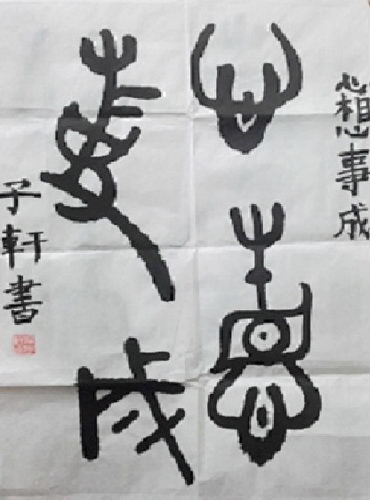 心想事成
心想
事成
子軒書